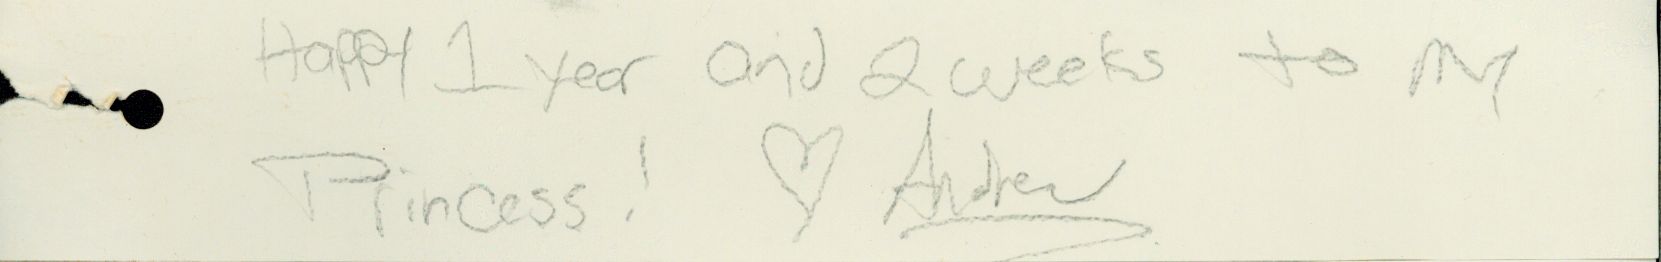 Happy 1 year and 2 weeks to my
Princess! ♡ Andrew